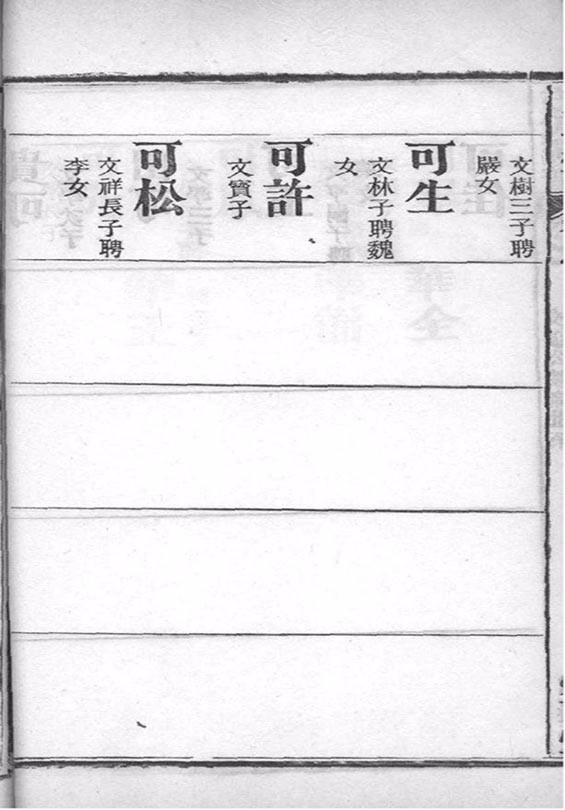 文樹三子聘
嚴女
可生
文林子聘魏
女
可許
文寳子
可松
文祥長子聘
李女